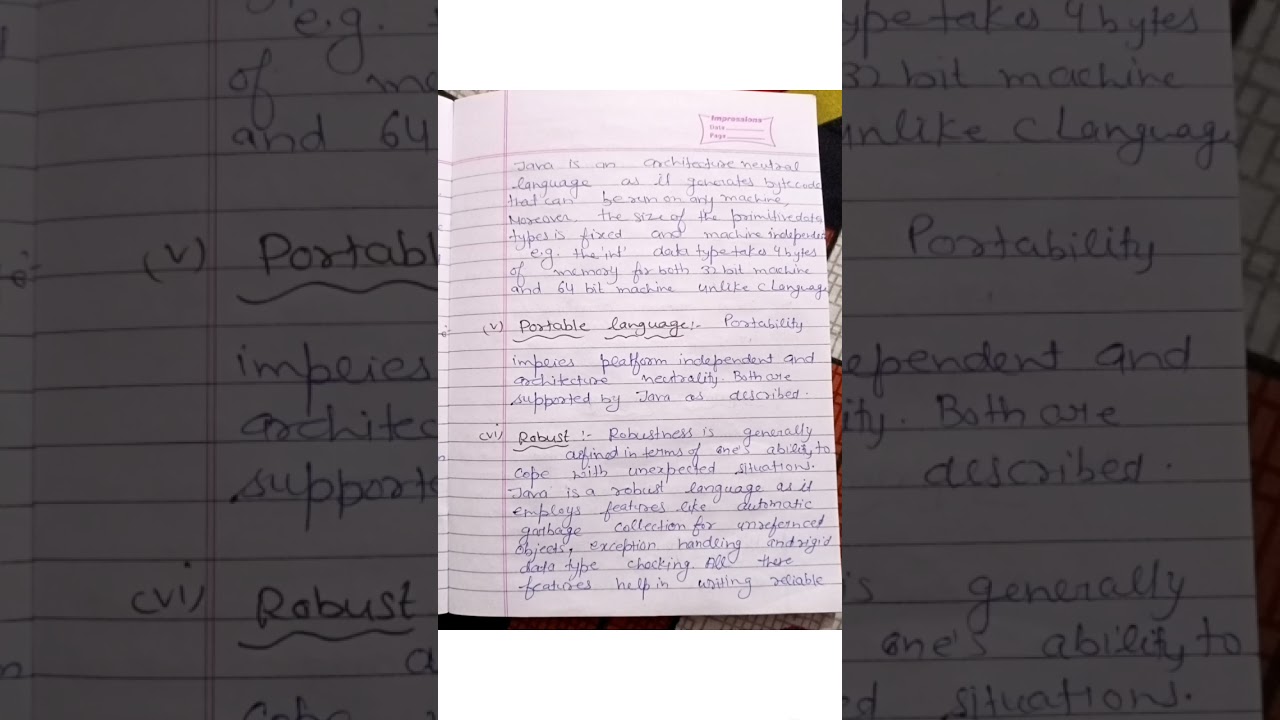 Impressions
Date
Page
Java is an architecture neutral
language as it generates bytecode
that can be run on any machine,
Moreover the size of the primitive data
types is fixed and machine independen
e.g. the 'int' data type takes 4 bytes
of memory for both 32 bit machine
and 64 bit machine unlike C Language
(v) Portable language:- Portability
impeies platform independent and
architecture neutrality. Both are
supported by Java as described.
(vi) Robust :- Robustness is generally
defined in terms of one's ability to
cope with unexpected situations.
Java is a robust language as it
employs features like automatic
garbage collection for unrefernced
objects, exception handling and rigid
data type chocking. All there
features help in writing reliable